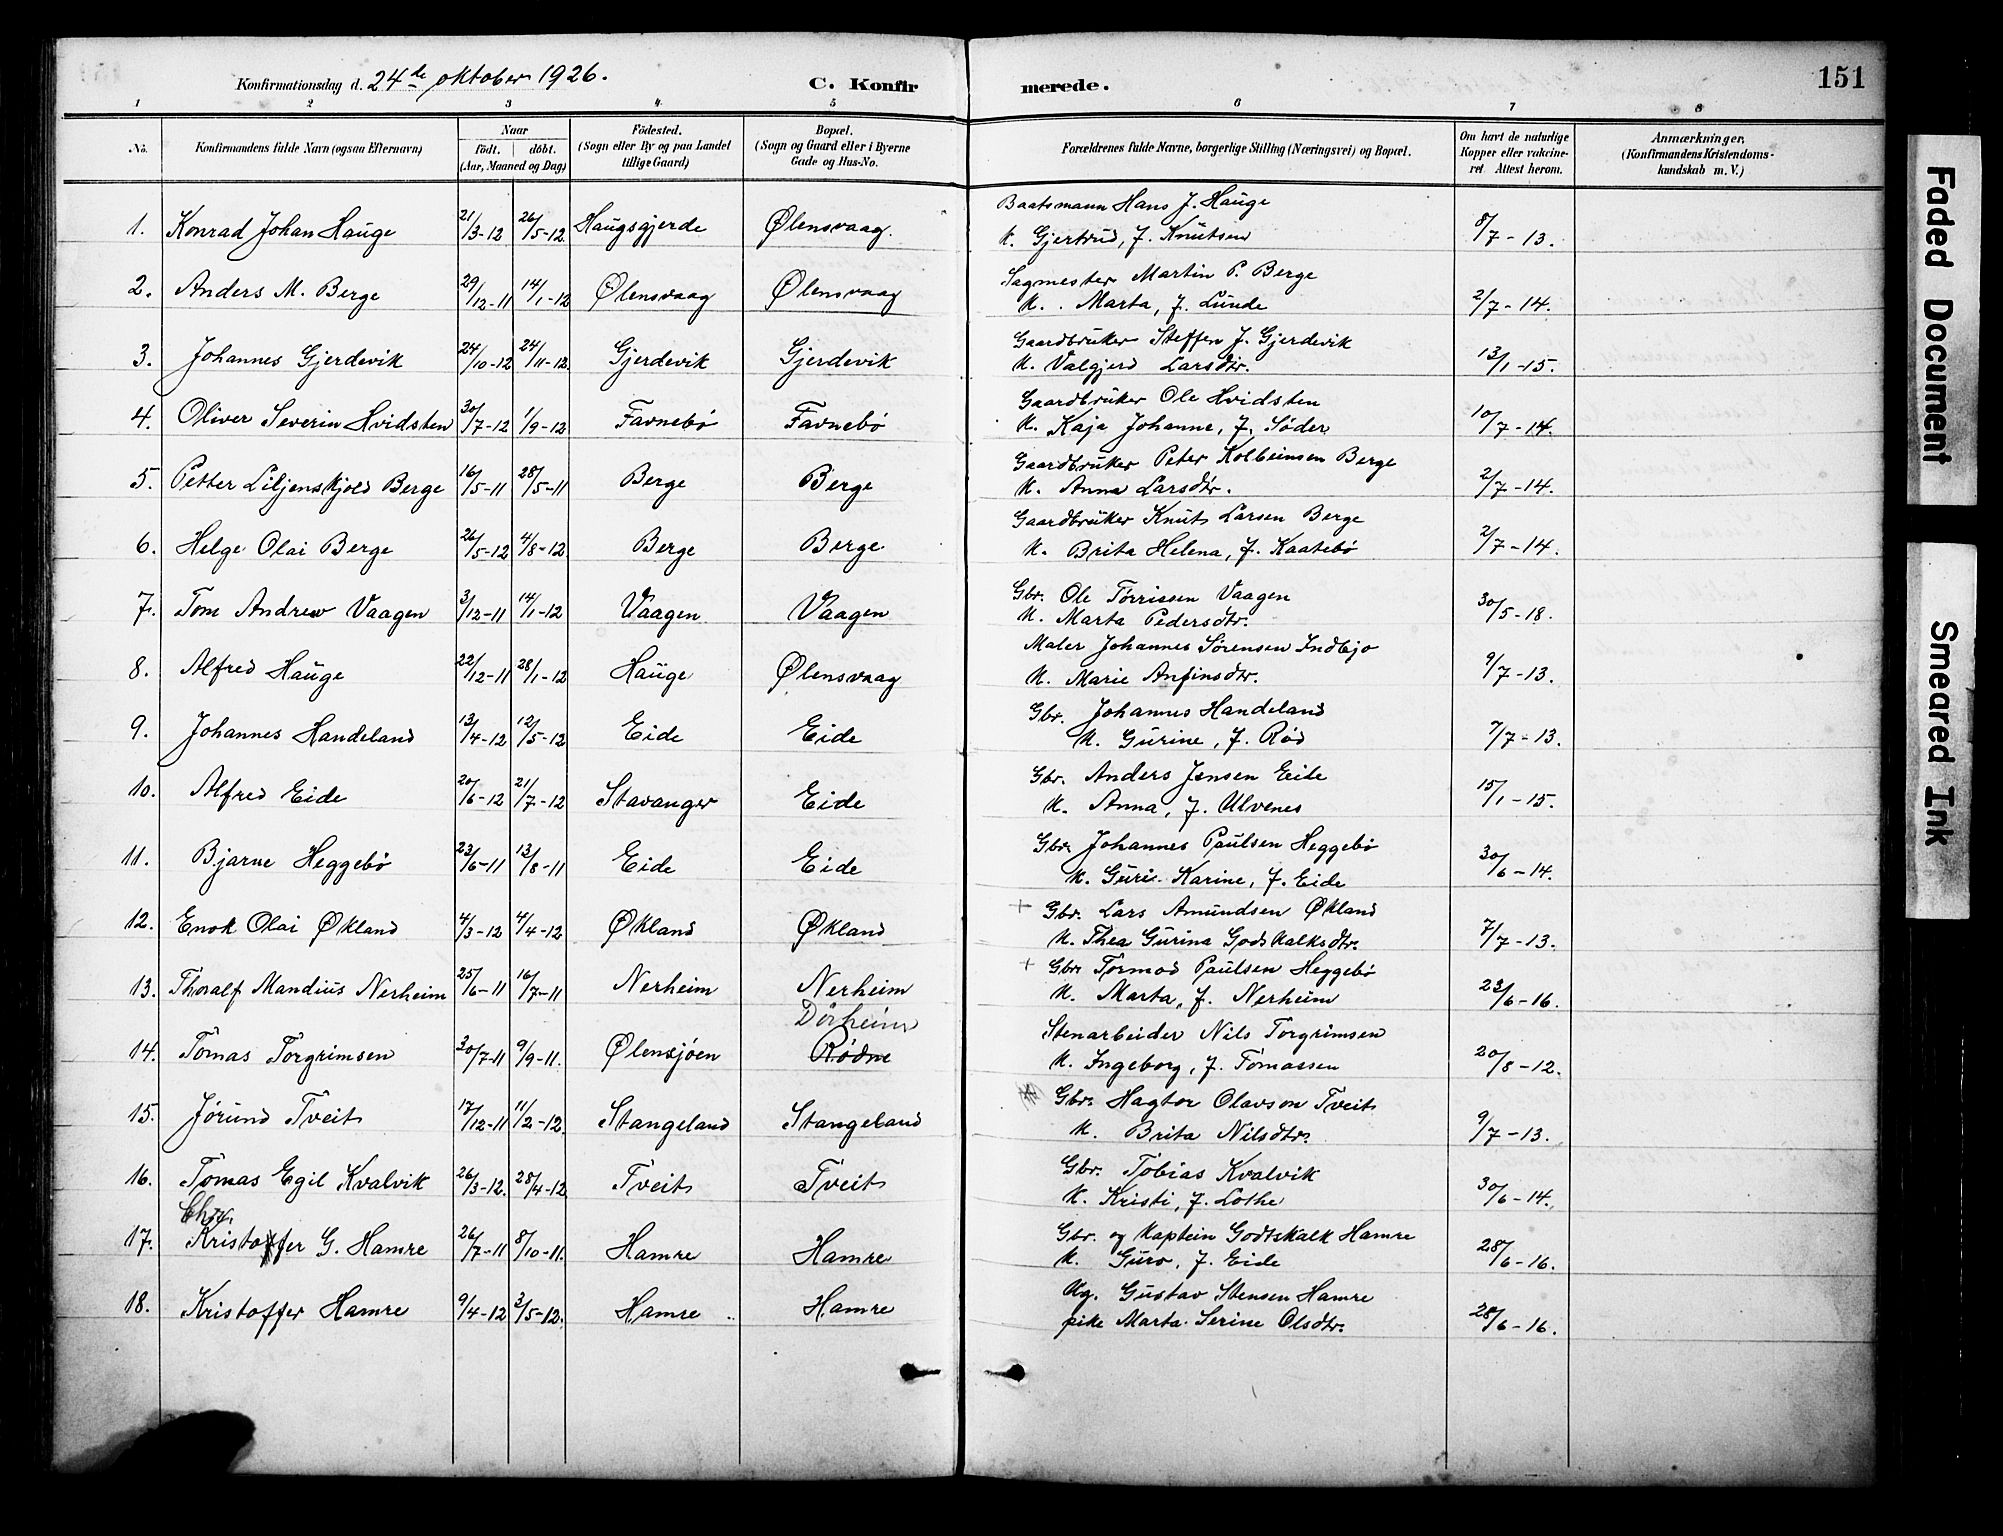 Konfirmationsdag d. 24de oktober 1926.
C. Konfirmerede.
151
1 2 3 4. 5 6 7 8
No.
Konfirmandens fulde Navn (ogsaa Efternavn)
Naar
födt. | döbt.
(Aar, Maaned og Dag)
Födested.
(Sogn eller By og paa Landet
tillige Gaard)
Bopæl.
(Sogn og Gaard eller i Byerne
Gade og Hus-No.
Forældrenes fulde Navne, borgerlige Stilling (Næringsvei) og Bopæl.
Om havt de naturlige
Kopper eller vakcine-
ret. Attest herom.
Anmærkninger,
(Konfirmandens Kristendoms-
kundskab m. V.)
Baatsmann Hans J. Hauge
1. Konrad Johan Hauge 21/3-12 26/5-12 Haugsgjerde Ølensvaag. K. Gjertrud, f. Knutsen 8/7-13.
Sagmester Martin P. Berge
2. Anders M. Berge 29/12-11 14/1-12 Ølensvaag Ølensvaag K. Marta, f. Lunde 2/7-14.
Gaardbruker Steffen J. Gjerdevik
3. Johannes Gjerdevik 24/10-12 24/11-12. Gjerdevik Gjerdevik K. Valgjerd Larsdtr. 13/1-15.
Gaardbruker Ole Hvidsten
4. Oliver Severin Hvidsten 30/7-12 1/9-12 Favnebö Favnebö K. Kaja Johanne, f. Söder 10/7-14.
Gaardbruker Peter Kolbeinsen Berge
5. Petter Liljenskjold Berge 16/5-11 28/5-11 Berge Berge K. Anna Larsdtr. 2/7-14.
Gaardbruker Knut Larsen Berge
6. Helge Olai Berge 26/5-12 4/8-12 Berge Berge K. Brita Helena, f. Kaatebö 2/7-14.
Gbr. Ole Törrissen Vaagen
7. Tom Andrew Vaagen 3/12-11 14/1-12 Vaagen Vaagen K. Marta Pedersdtr. 30/5-18.
Maler Johannes Sörensen Indbjo
8. Alfred Hauge 22/12-11 28/1-12 Hauge Ølensvaag K. Marie Anfinsdtr. 9/7-13.
Gbr. Johannes Handeland
9. Johannes Handeland 13/4-12 12/5-12 Eide Eide K. Gurine, f. Röd 7/7-13.
Gbr. Anders Jensen Eide
10. Alfred Eide 20/6-12 21/7-12 Stavanger Eide K. Anna, f. Ulvenes 15/1-15.
Gbr. Johannes Paulsen Heggebö
11. Bjarne Heggebö 23/6-11 13/8-11 Eide Eide K. Guri Karine, f. Eide 30/6-14.
+ Gbr. Lars Amundsen Økland
12. Enok Olai Økland 4/3-12 4/4-12 Økland Økland K. Thea Gurina Godskalksdtr. 7/7-13.
+ Gbr Tormod Paulsen Heggebö
13. Thoralf Mandius Nerheim 25/6-11 16/7-11 Nerheim Nerheim K. Marta, f. Nerheim 23/6-16.
Dörheim Stenarbeider Nils Torgrimsen
14. Tomas Torgrimsen 30/7-11 9/9-11. Ølensjöen Rödne K. Ingeborg, f. Tomassen 20/8-12.
Gbr. Hagtor Olavson Tveit
15. Jörund Tveit 17/12-11 11/2-12. Stangeland Stangeland K. Brita Nilsdtr. 9/7-13.
Gbr. Tobias Kvalvik
16. Tomas Egil Kvalvik 26/3-12. 28/4-12 Tveit Tveit K. Kristi, f. Lothe 30/6-14.
Chr.
Gbr. og Kaptein Godtskalk Hamre
17. Kristoffer G. Hamre 26/7-11 8/10-11. Hamre Hamre K. Guro, f. Eide 28/6-16.
Ug. Gustav Stensen Hamre
18. Kristoffer Hamre 9/4-12 3/5-12. Hamre Hamre pike Marta Serine Olsdtr. 28/6-16.
Faded Document
Smeared Ink